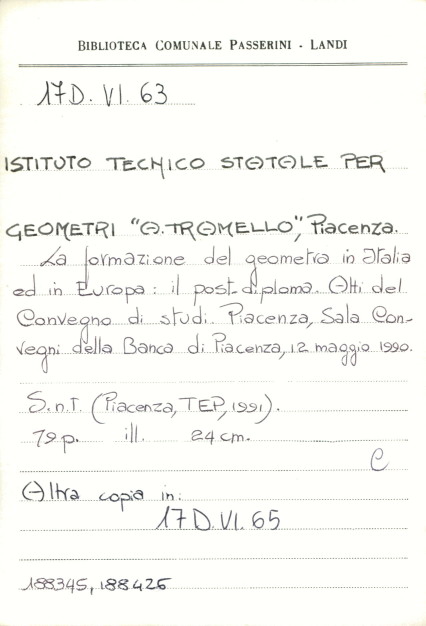 BIBLIOTECA COMUNALE PASSERINI - LANDI
17D. VI. 63
ISTITUTO TECNICO STATALE PER
GEOMETRI "A. TRAMELLO", Piacenza.
La formazione del geometra in Italia
ed in Europa: il post diploma. Atti del
Convegno di studi. Piacenza, Sala Con-
vegni della Banca di Piacenza, 12 maggio 1990.
S.n.T. (Piacenza, TEP, 1991).
79 p. ill. 24 cm.
C
Altra copia in:
17D. VI. 65
188345, 188426